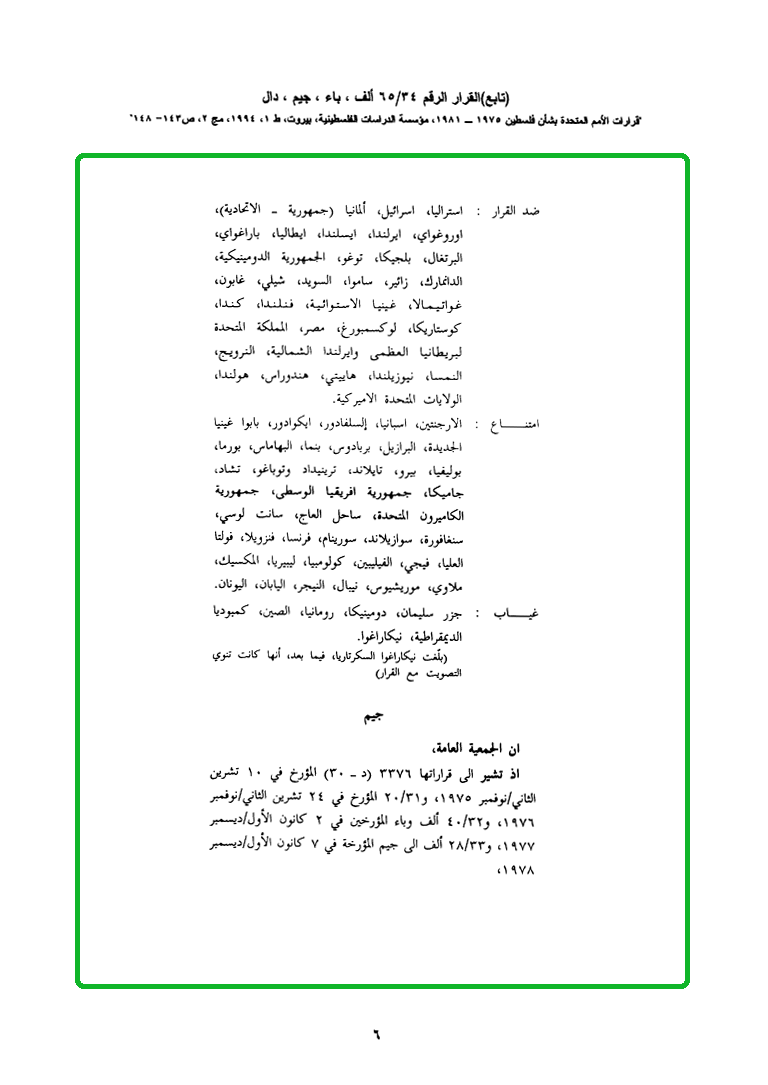 (تابع)القرار الرقم ٦٥/٣٤ ألف ، باء ، جيم ، دال
"قرارات الأمم المتحدة بشأن فلسطين ١٩٧٥ – ١٩٨١، مؤسسة الدراسات الفلسطينية، بيروت، ط ١، ١٩٩٤، مج ٢، ص١٤٣- ١٤٨"
ضد القرار : استراليا، اسرائيل، ألمانيا (جمهورية ـ الاتحادية)،
اوروغواي، ايرلندا، ايسلندا، ايطاليا، باراغواي،
البرتغال، بلجيكا، توغو، الجمهورية الدومينيكية،
الدانمارك، زائير، ساموا، السويد، شيلي، غابون،
غواتيمالا، غينيا الاستوائية، فنلندا، كندا،
كوستاريكا، لوكسمبورغ، مصر، المملكة المتحدة
لبريطانيا العظمى وايرلندا الشمالية، النرويج،
النمسا، نيوزيلندا، هاييتي، هندوراس، هولندا،
الولايات المتحدة الاميركية.
امتنـــاع : الارجنتين، اسبانيا، إلسلفادور، ايكوادور، بابوا غينيا
الجديدة، البرازيل، بربادوس، بنما، البهاماس، بورما،
بوليفيا، بيرو، تايلاند، ترينيداد وتوباغو، تشاد،
جاميكا، جمهورية افريقيا الوسطى، جمهورية
الكاميرون المتحدة، ساحل العاج، سانت لوسي،
سنغافورة، سوازيلاند، سورينام، فرنسا، فنزويلا، فولتا
العليا، فيجي، الفيليبين، كولومبيا، ليبيريا، المكسيك،
ملاوي، موريشيوس، نيبال، النيجر، اليابان، اليونان.
غيـــاب : جزر سليمان، دومينيكا، رومانيا، الصين، كمبوديا
الديمقراطية، نيكاراغوا.
(بلّغت نيكاراغوا السكرتاريا، فيما بعد، أنها كانت تنوي
التصويت مع القرار)
جيم
ان الجمعية العامة،
اذ تشير الى قراراتها ٣٣٧٦ (د ـ ٣٠) المؤرخ في ١٠ تشرين
الثاني/نوفمبر ١٩٧٥، و٢٠/٣١ المؤرخ في ٢٤ تشرين الثاني/نوفمبر
١٩٧٦، و٤٠/٣٢ ألف وباء المؤرخين في ٢ كانون الأول/ديسمبر
١٩٧٧، و٢٨/٣٣ ألف الى جيم المؤرخة في ٧ كانون الأول/ديسمبر
١٩٧٨،
٦